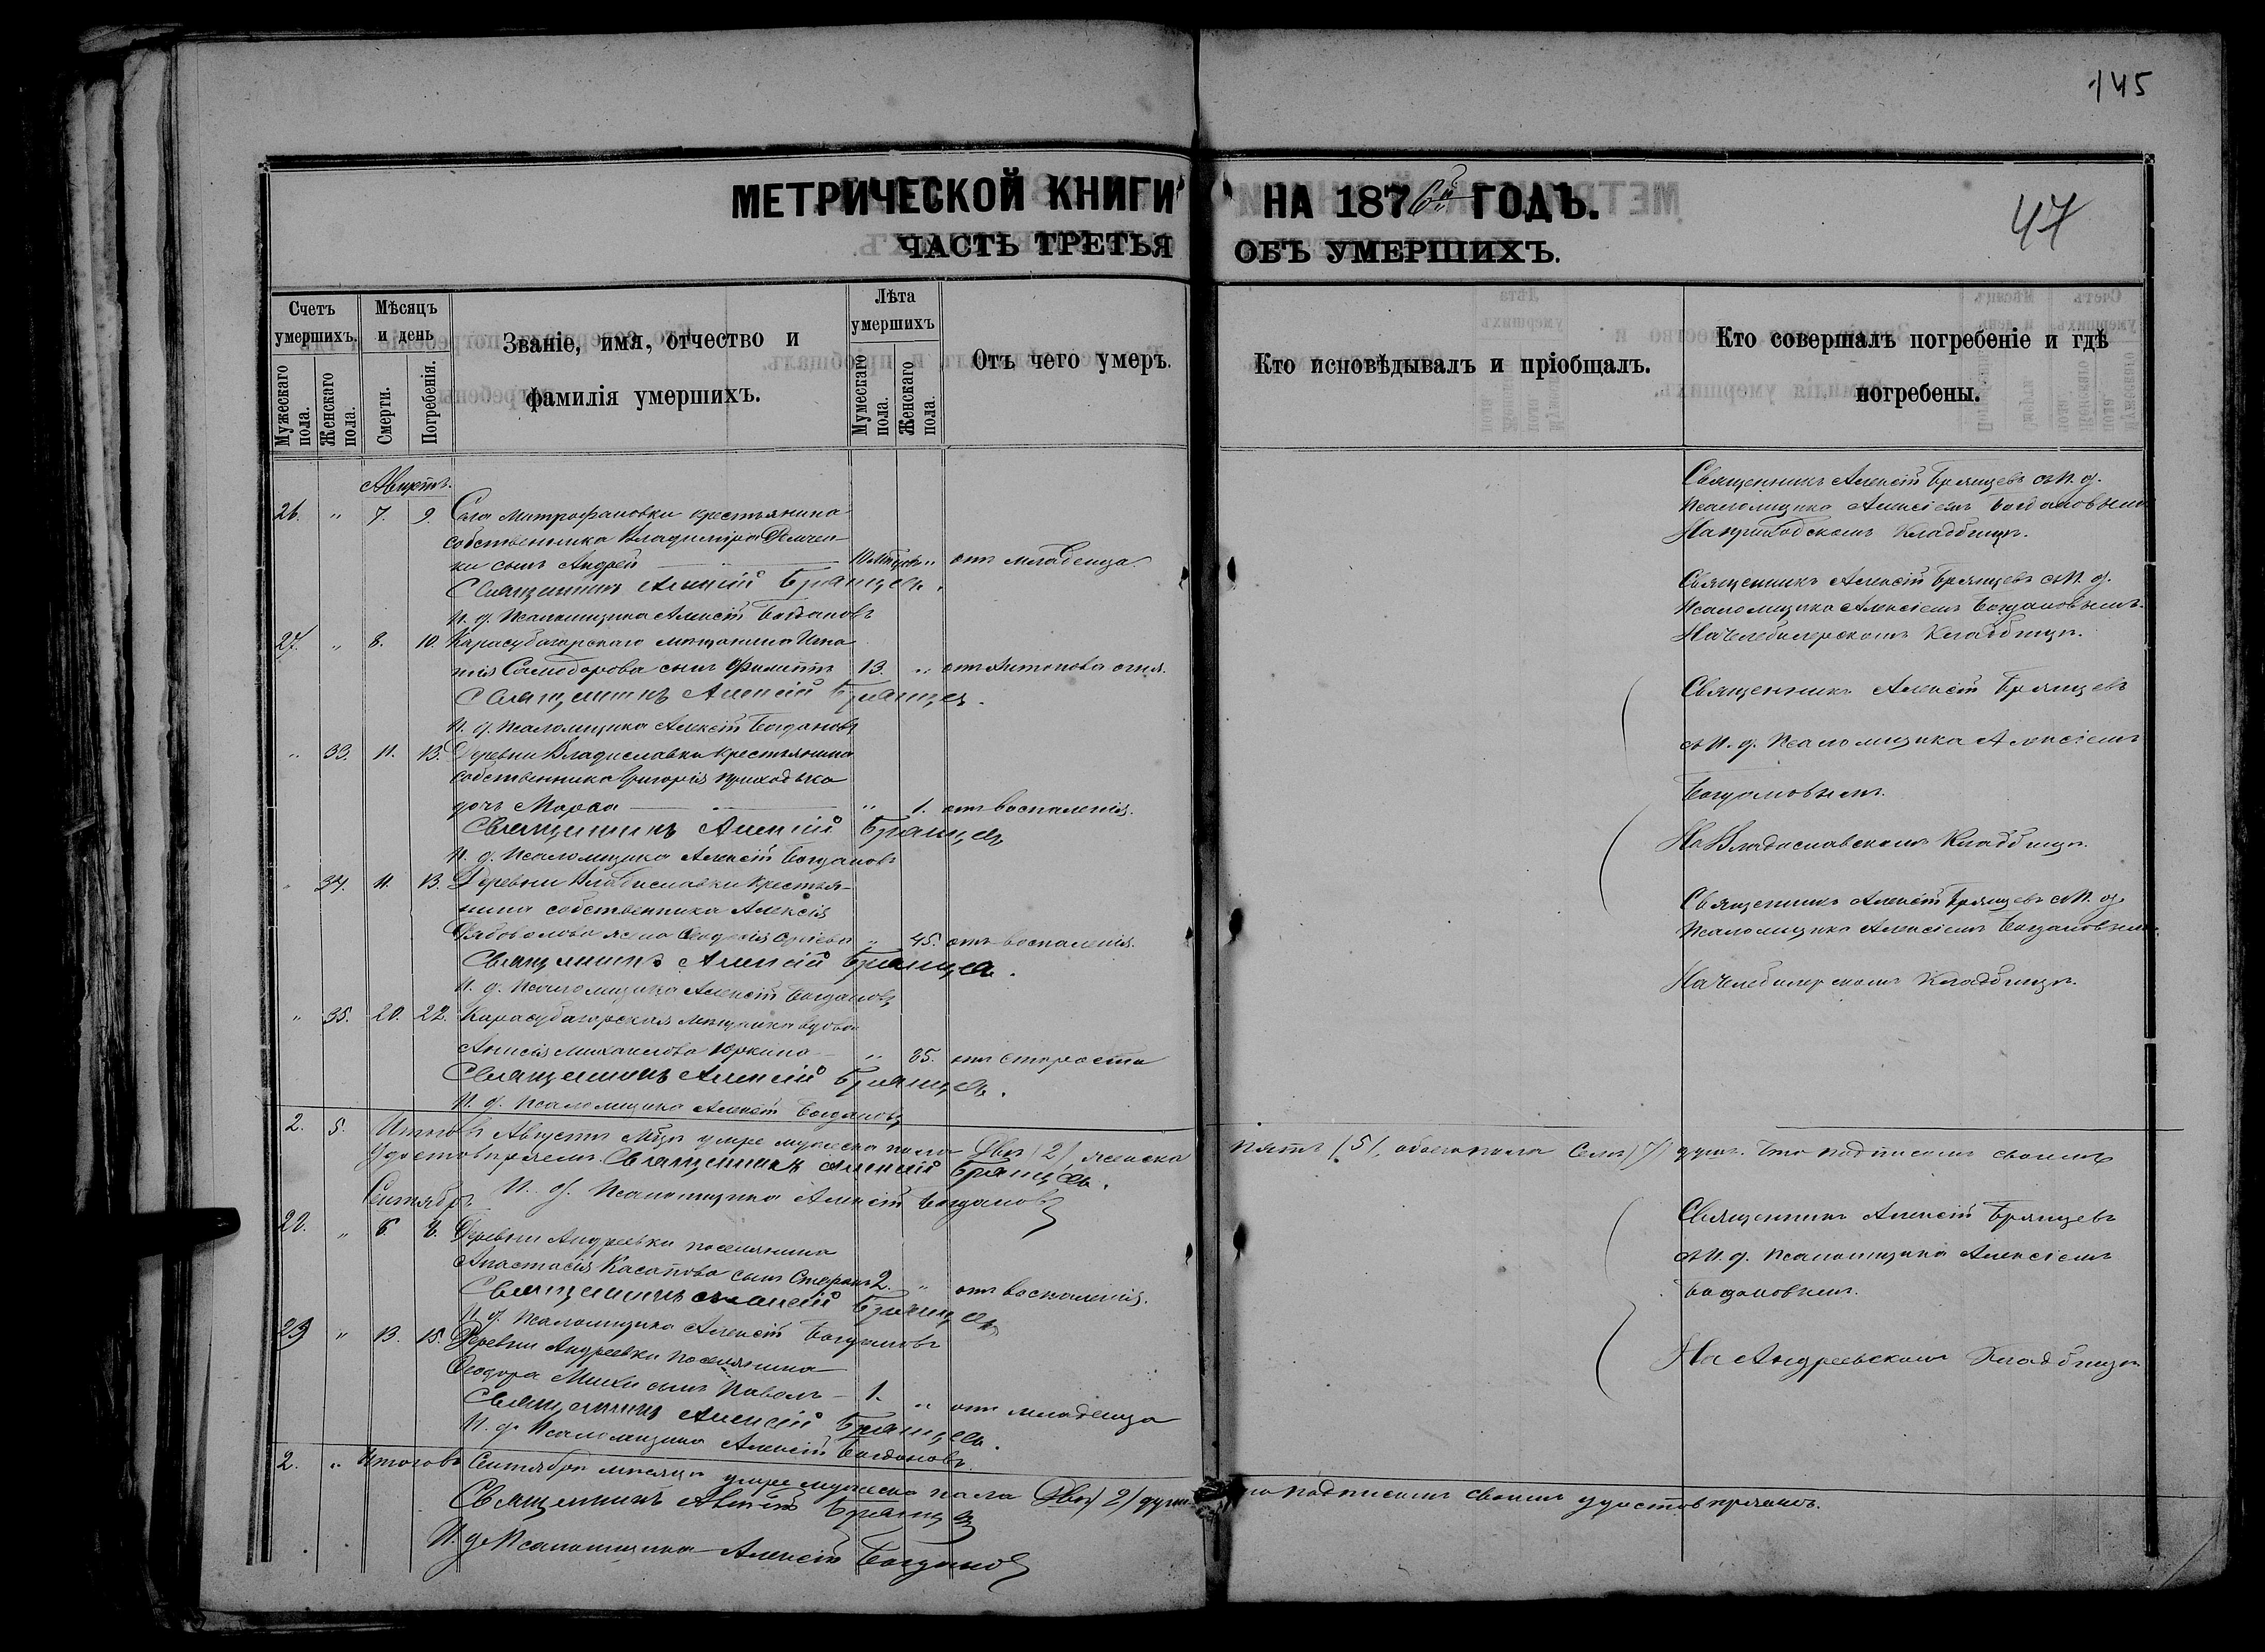 145
МЕТРИЧЕСКОЙ КНИГИ НА 1876й ГОДЪ.
47
ЧАСТЬ ТРЕТЬЯ ОБЪ УМЕРШИХЪ.
Счетъ умершихъ.
Мужескаго пола.
Женскаго пола.
Мѣсяцъ и день
Смерти.
Погребенія.
Званіе, имя, отчество и
фамилія умершихъ.
Лѣта умершихъ
Мужескаго пола.
Женскаго пола.
Отъ чего умеръ.
Кто исповѣдывалъ и пріобщалъ.
Кто совершалъ погребеніе и гдѣ
погребены.
Августъ.
26. " 7. 9. Села Митрофановки крестьянина
собственника Владиміра
сынъ Андрей " отъ младенца
Священникъ Алексій Брянцевъ.
И. д. Псаломщика Алексій Богдановъ
Священникъ Алексій Брянцевъ съ И. д.
Псаломщика Алексіемъ Богдановымъ
На приходскомъ Кладбищѣ.
27. " 8. 10. Карасубазарскаго мѣщанина
сынъ Филиппъ 13. " отъ Антонова огня.
Священникъ Алексій Брянцевъ.
И. д. Псаломщика Алексій Богдановъ
Священникъ Алексій Брянцевъ съ И. д.
Псаломщика Алексіемъ Богдановымъ.
На Челебилерскомъ Кладбищѣ.
" 33. 11. 13. Деревни Владиславки крестьянина
собственника Григорія Приходька
дочь " 1. отъ воспаленія.
Священникъ Алексій Брянцевъ
И. д. Псаломщика Алексій Богдановъ
Священникъ Алексій Брянцевъ
съ И. д. Псаломщика Алексіемъ
Богдановымъ.
На Владиславскомъ Кладбищѣ.
" 34. 11. 13. Деревни Владиславки крестья-
нина собственника Алексія
жена " 45. отъ воспаленія.
Священникъ Алексій Брянцевъ.
И. д. Псаломщика Алексій Богдановъ
Священникъ Алексій Брянцевъ съ И. д.
Псаломщика Алексіемъ Богдановымъ.
На Челебилерскомъ Кладбищѣ.
" 35. 20. 22. Карасубазарская мѣщанка вдова
Анисія Михаилова Юркина " 85. отъ старости
Священникъ Алексій Брянцевъ.
И. д. Псаломщика Алексій Богдановъ
2. 5. Итого въ Августѣ мѣсяцѣ умре мужеска пола Два /2/, женска пять /5/, обоего пола Семь /7/ душъ. Что подписомъ своимъ
удостовѣряемъ. Священникъ Алексій Брянцевъ.
И. д. Псаломщика Алексій Богдановъ
Сентябрь
28. " 6. 8. Деревни Андреевки поселянина
Анастасія Касапова сынъ Стефанъ 2. " отъ воспаленія.
Священникъ Алексій Брянцевъ
И. д. Псаломщика Алексій Богдановъ
Священникъ Алексій Брянцевъ
съ И. д. Псаломщика Алексіемъ
Богдановымъ.
29 " 13. 15. Деревни Андреевки поселянина
Ѳеодора сынъ Павелъ 1. " отъ младенца
Священникъ Алексій Брянцевъ.
И. д. Псаломщика Алексій Богдановъ.
На Андреевскомъ Кладбищѣ
2. " Итого въ Сентябрѣ мѣсяцѣ умре мужеска пола Два /2/ души что подписомъ своимъ удостовѣряемъ.
Священникъ Алексій Брянцевъ
И. д. Псаломщика Алексій Богдановъ